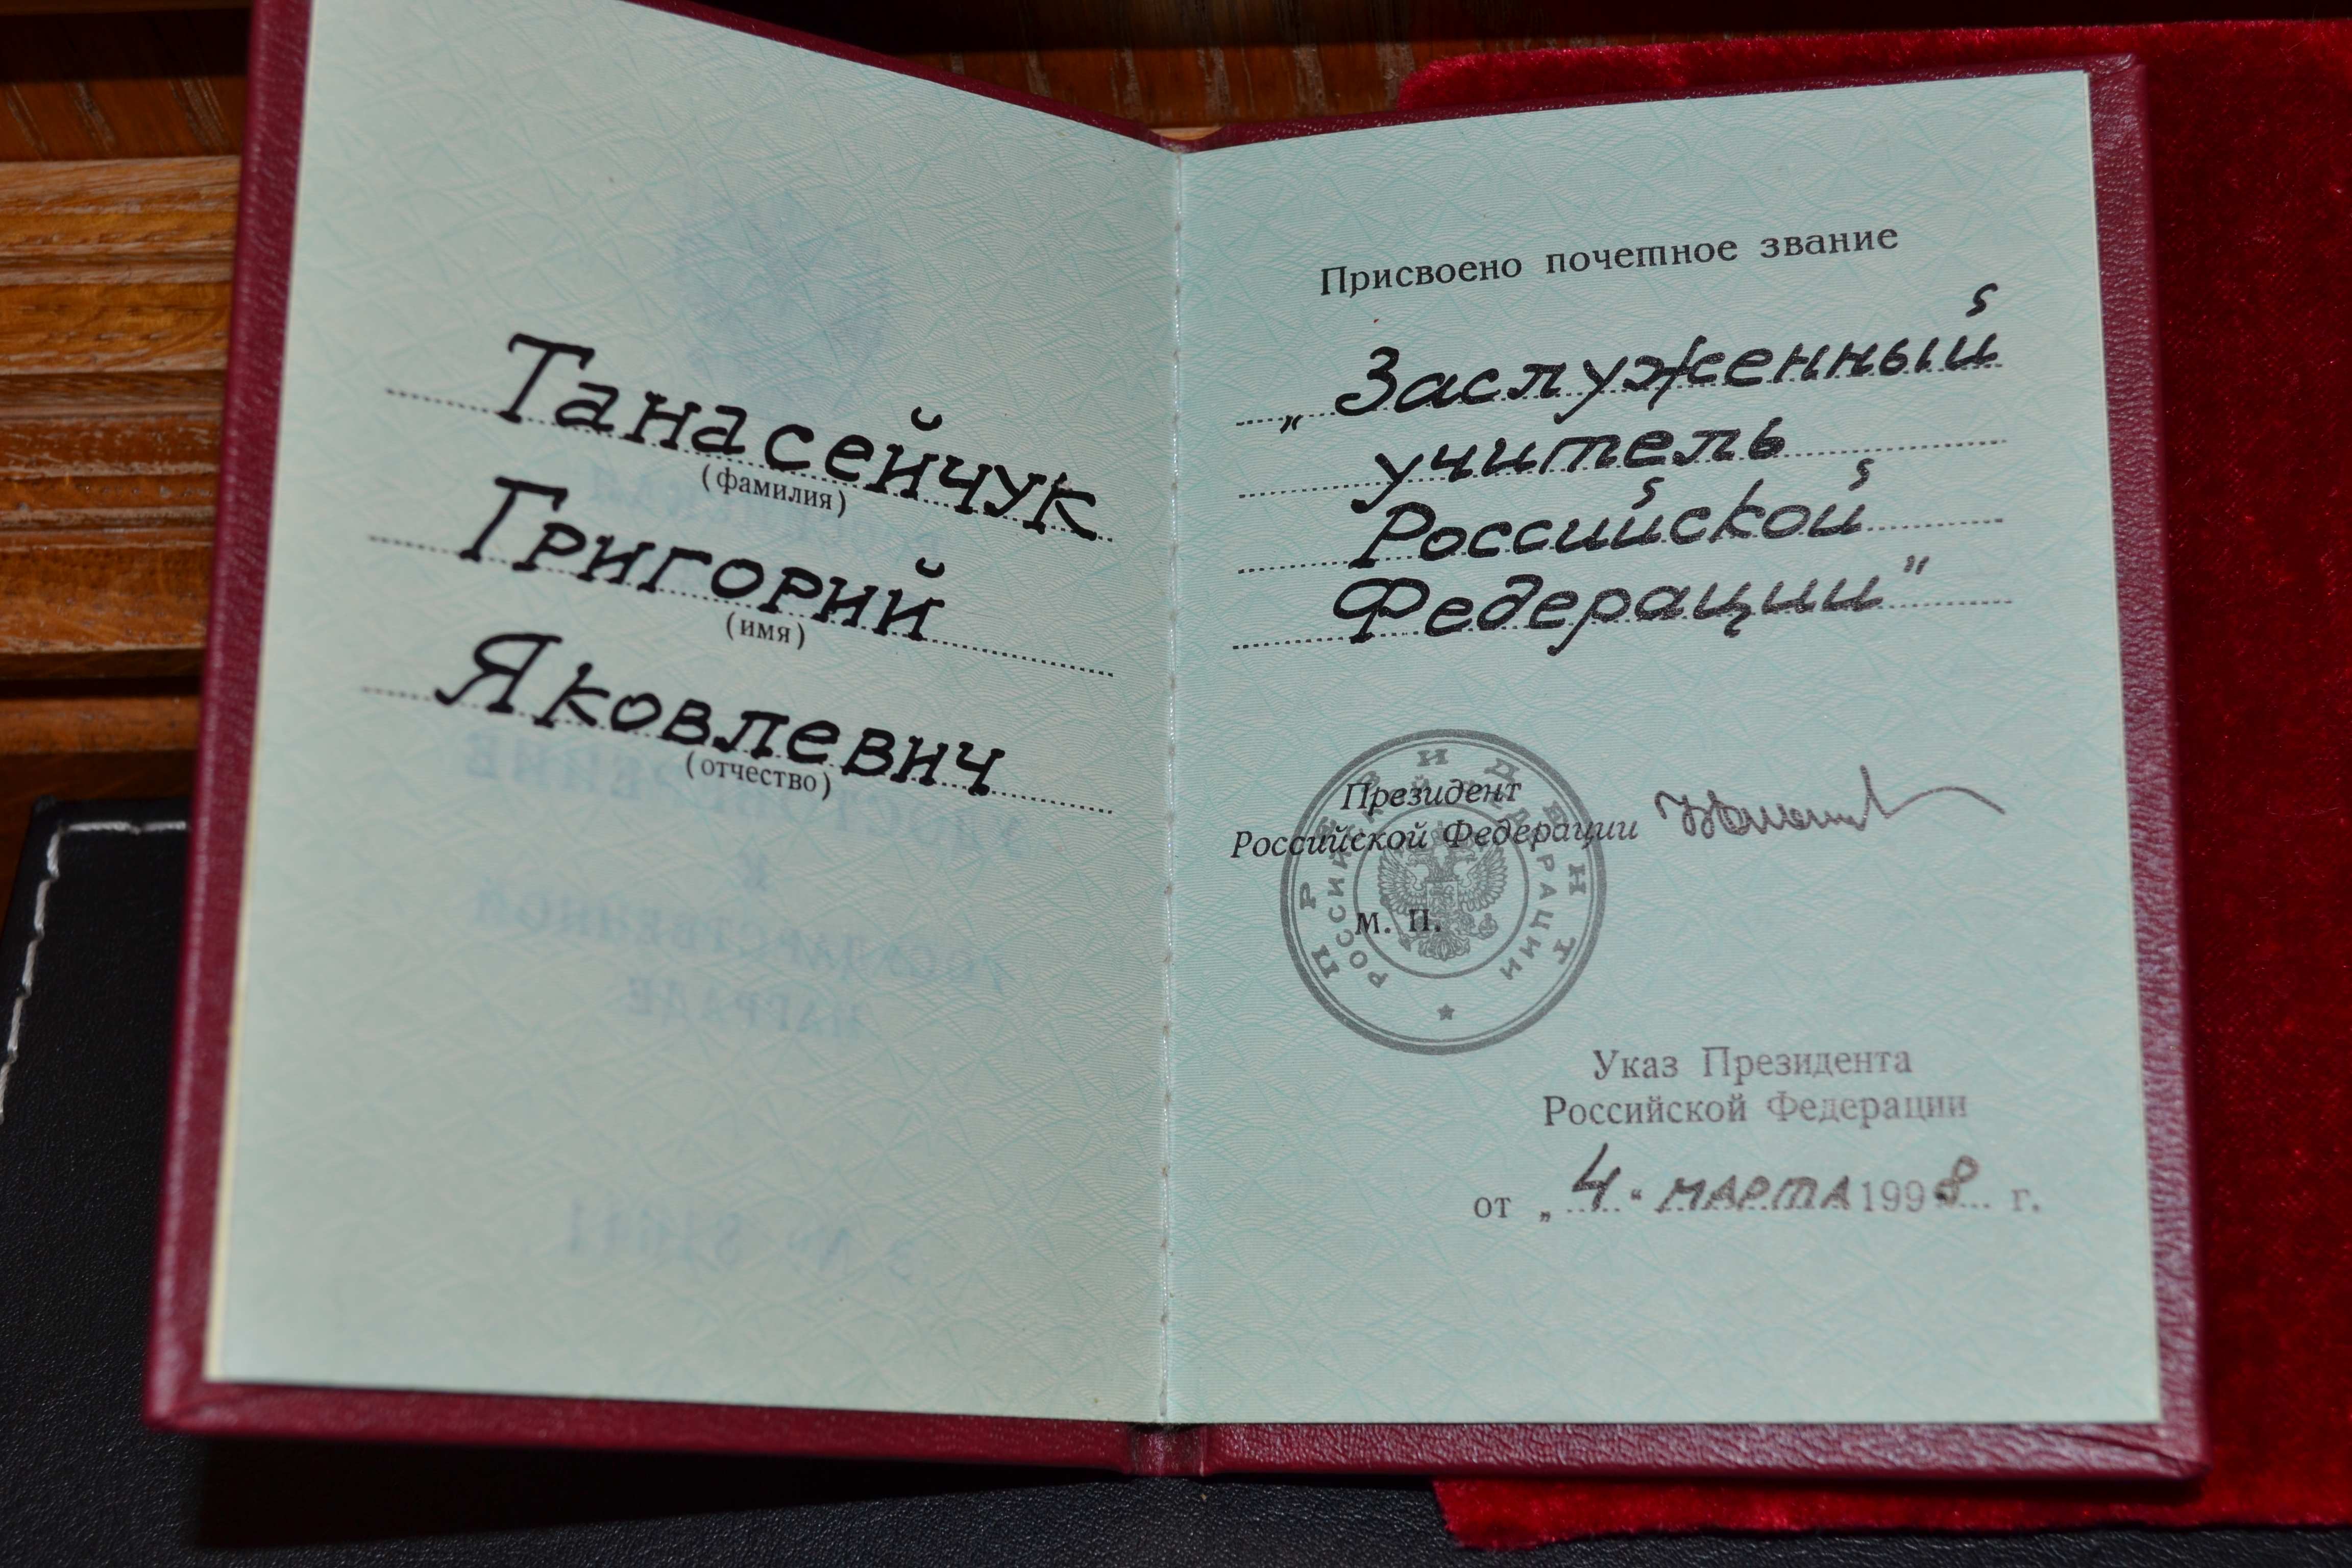 Танасейчук
(фамилия)
Григорий
(имя)
Яковлевич
(отчество)
Присвоено почетное звание
„Заслуженный
учитель
Российской
Федерации"
Президент
Российской Федерации
М. П.
ПРЕЗИДЕНТ
РОССИЙСКОЙ ФЕДЕРАЦИИ
Указ Президента
Российской Федерации
от „4“ марта 1998 г.